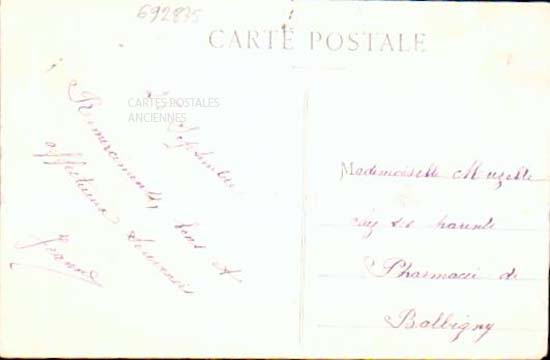 692835
CARTE POSTALE
CARTES POSTALES
ANCIENNES
Septembre
Remerciements bons et
affectueux souvenirs
Jeanne
Mademoiselle Muzelle
chez ses parents
Pharmacie de
Balbigny